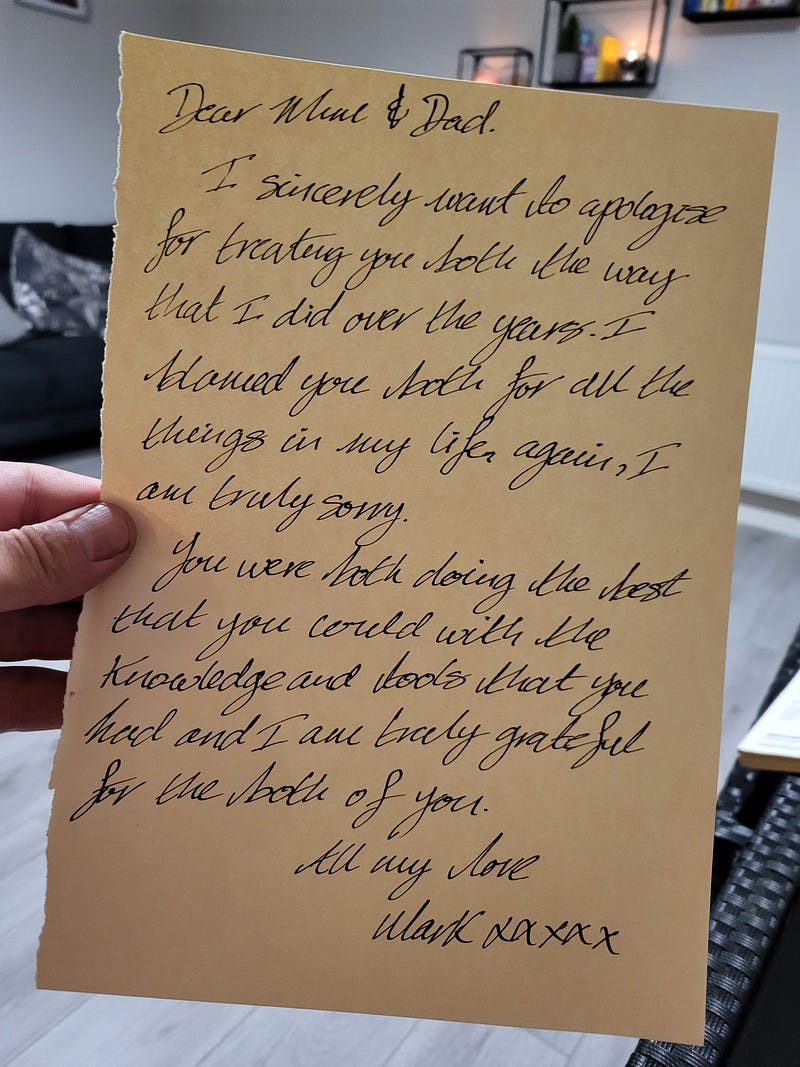 Dear Mum & Dad.
I sincerely want to apologise
for treating you both the way
that I did over the years. I
blamed you both for all the
things in my life, again, I
am truly sorry.
You were both doing the best
that you could with the
Knowledge and tools that you
had and I am truly grateful
for the both of you.
All my love
Mark xxxxx